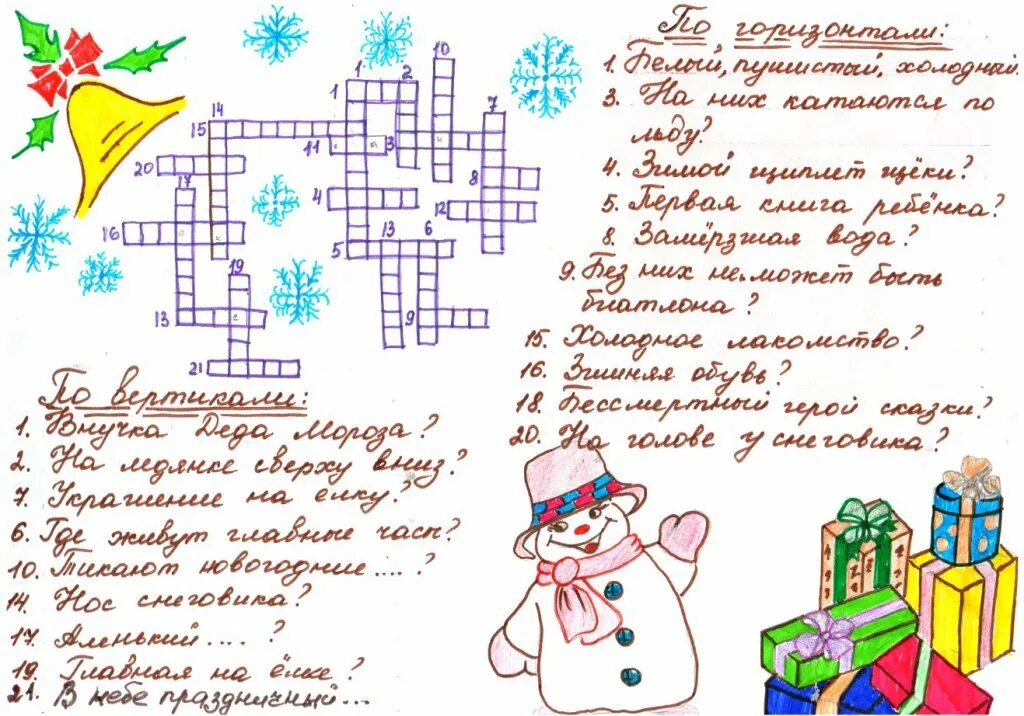 10
1 2
1
7
14
15
11 3
20
17
8
4
12
16
13 6
5
19
13
9
21
По горизонтали:
1. Белый, пушистый, холодный.
3. На них катаются по
льду?
4. Зимой щиплет щёки?
5. Первая книга ребёнка?
8. Замёрзшая вода?
9. Без них не может быть
биатлона?
15. Холодное лакомство?
16. Зимняя обувь?
18. Бессмертный герой сказки?
20. На голове у снеговика?
По вертикали:
1. Внучка Деда Мороза?
2. На ледянке сверху вниз?
7. Украшение на ёлку?
6. Где живут главные часы?
10. Тикают новогодние....?
14. Нос снеговика?
17. Аленький....?
19. Главная на ёлке?
21. В небе праздничный...